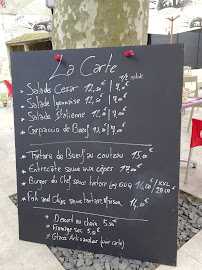 La Carte
1/2 salade
Salade Cesar 12,00€ / 9,00€
Salade Lyonnaise 12,00€ / 9,00€
Salade Italienne 12,00€ / 9,00€
Carpaccio de Bœuf 13,00 / 9,00
Tartare de Bœuf au couteau 15,00€
Entrecôte sauce aux cèpes 17,00€
Burger du Chef sauce tartare ou BBQ 16,00€ / XXL
Fish and Chips sauce tartare Maison 14,00€
Dessert au choix 5,50€
Fromage sec 5,50€
Glace Artisanales (voir carte)